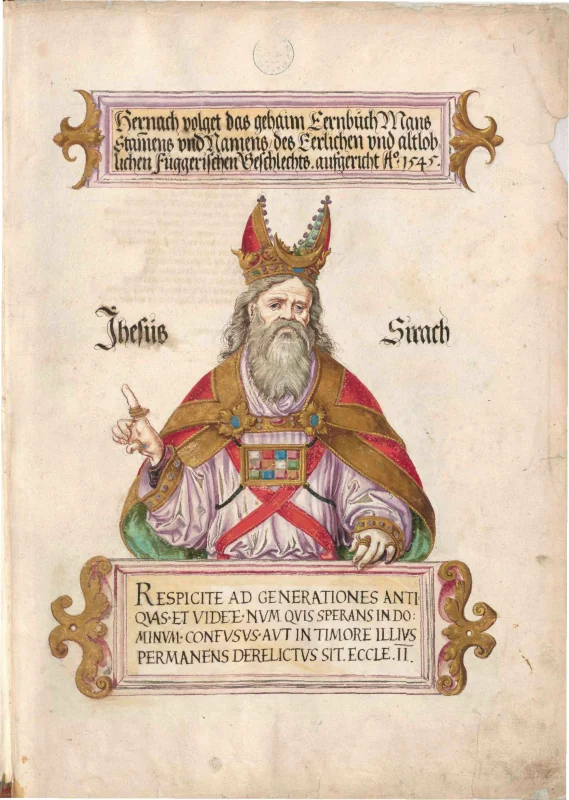 Hernach volget das gehaim Eernbüch Mans
Stam̄ens vnd Namens, des Eerlichen vnd altlob
lichen Fuggerischen Geschlechts. aufgericht Aº. 1545.
Jhesüs Sirach
RESPICITE AD GENERATIONES ANTI
QVAS·ET VIDETE·NVM QVIS SPERANS IN DO:
MINVM·CONFVSVS·AVT IN TIMORE ILLIVS
PERMANENS DERELICTVS SIT. ECCLE.II.